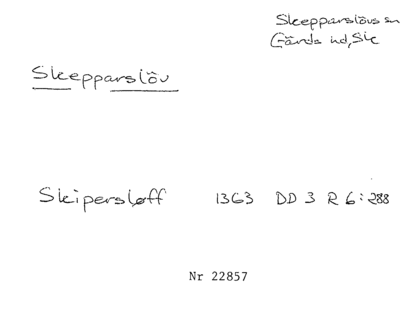 Skepparslövs sn
Gärds hd, Sk
Skepparslöv
Skipersløff 1363 DD 3 R 6:288
Nr 22857